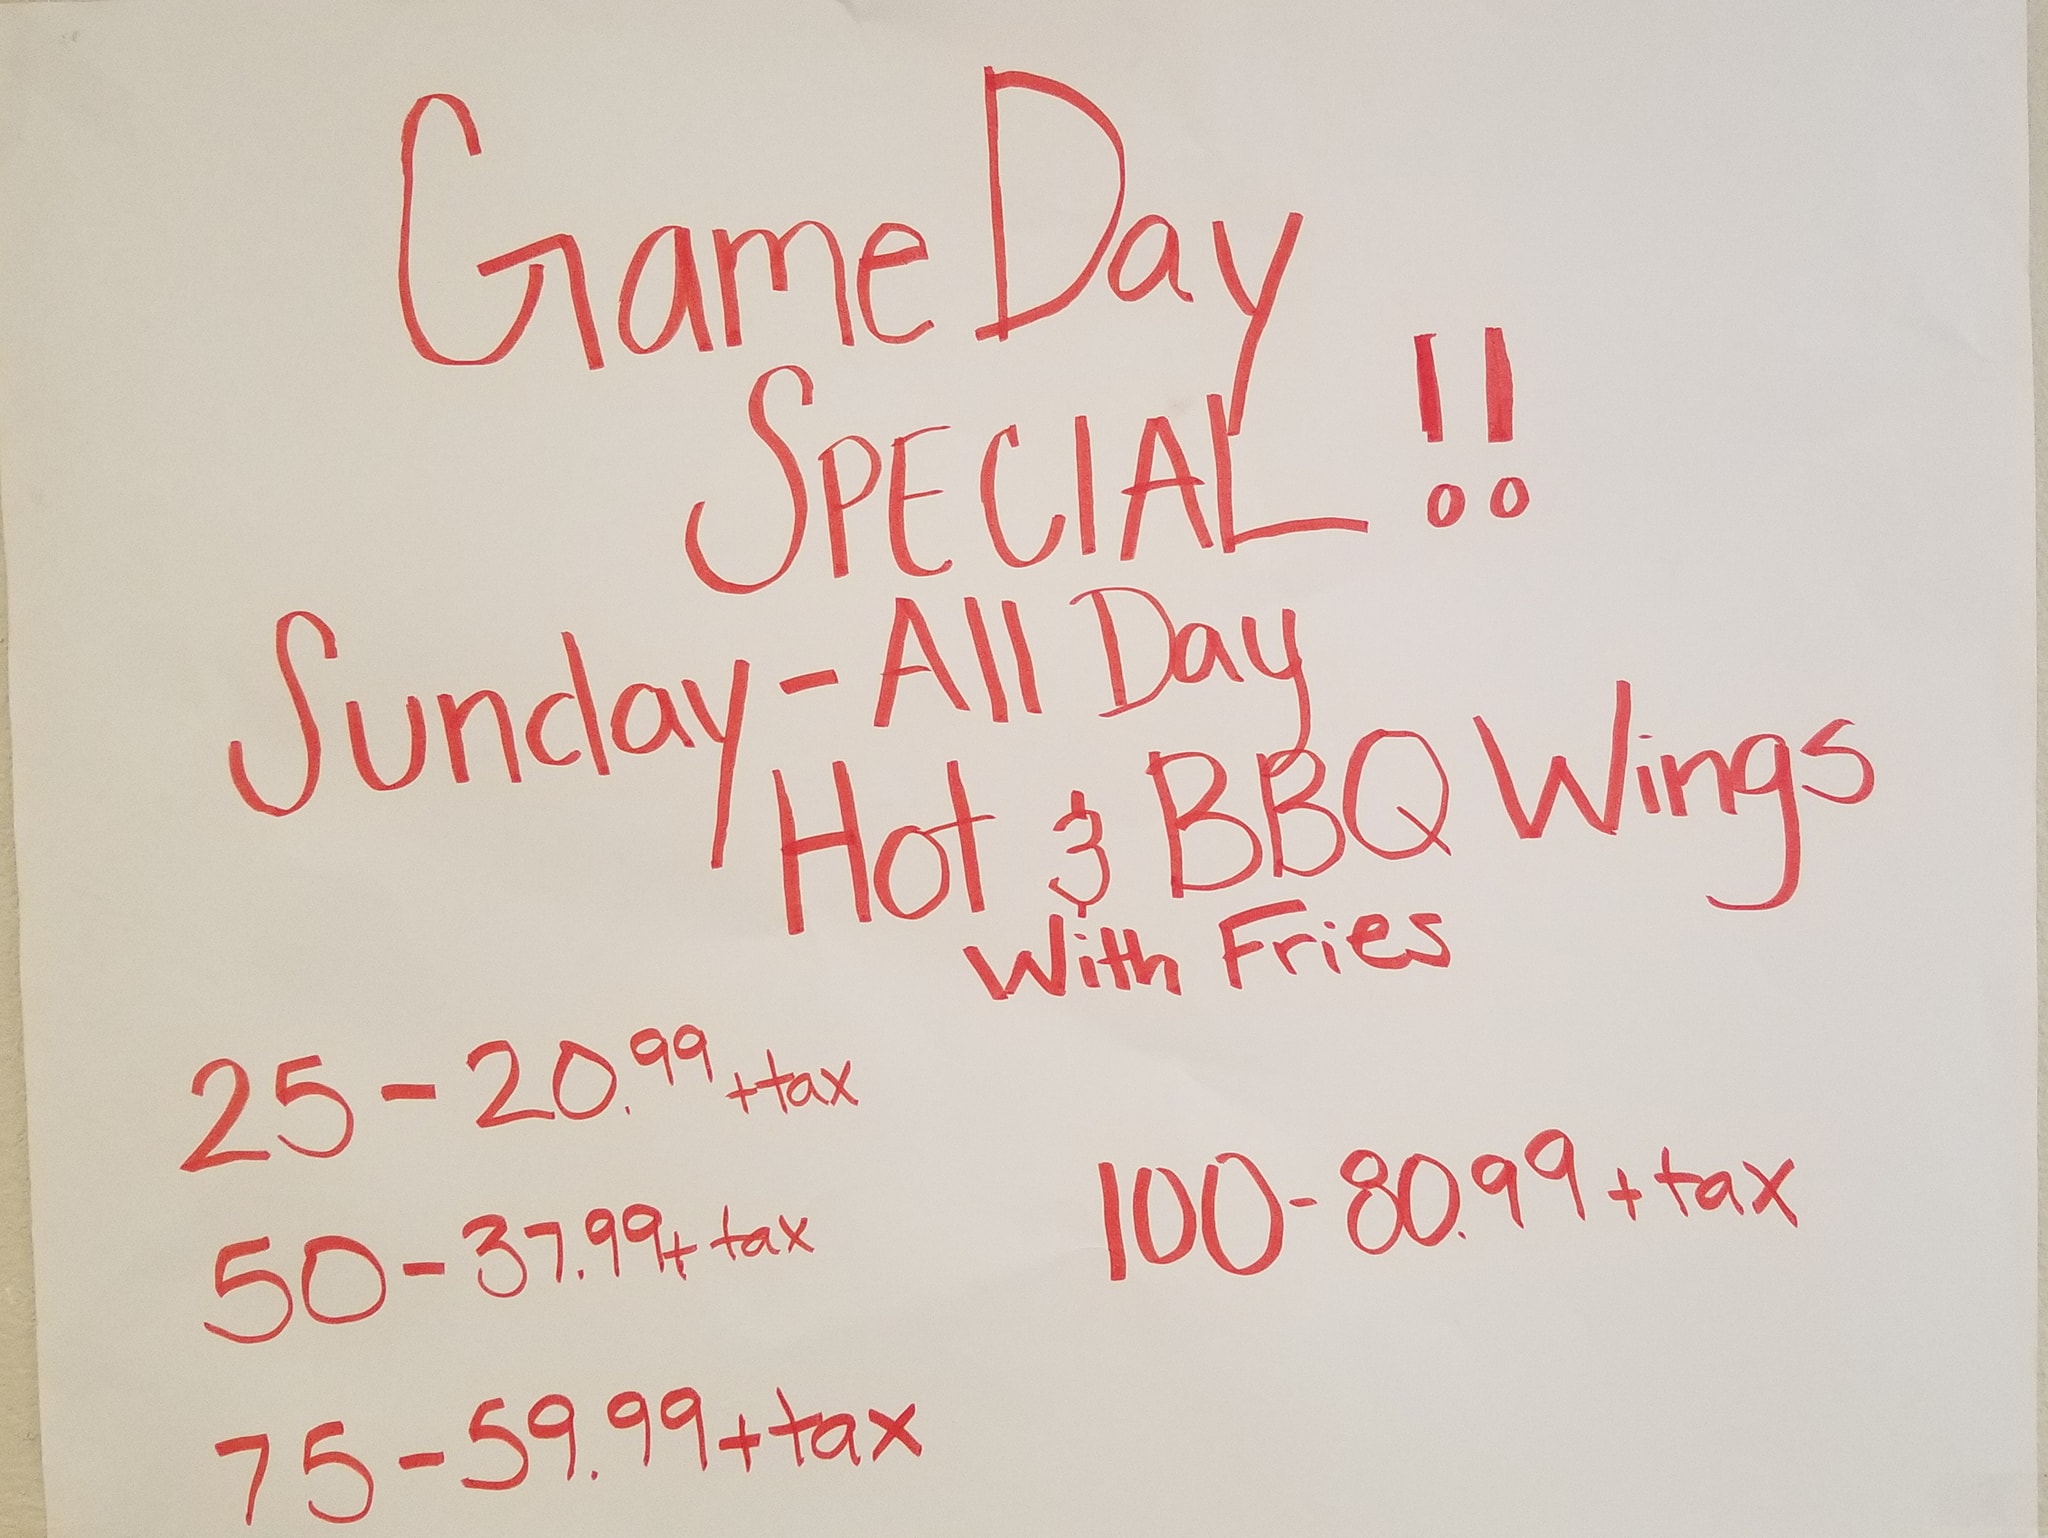 Game Day
SPECIAL !!
Sunday - All Day
Hot & BBQ Wings
With Fries
25 - 20.99 + tax
50 - 37.99 + tax
75 - 59.99 + tax
100 - 80.99 + tax